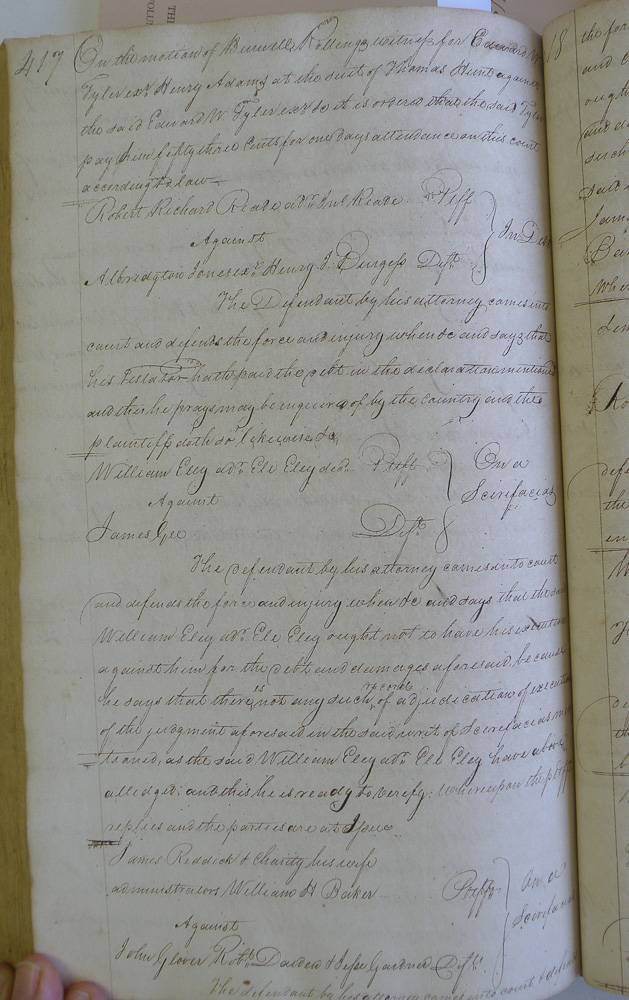 417 On the motion of Burwell Rollings witness for Edward W
Tyler exr. Henry Adams at the suit of Thomas Hunt against
the said Edward W. Tyler exr. &c it is ordered that the said Tyler
pay him fifty three Cents for one days attendance on this court
according to law
Robert Richard Reade adr. Jno Reade Pltff
Against In Debt
Albridgton Jones exr. Henry J. Burgess Deft.
The Defendant by his attorney comes into
court and defends the force and injury when &c and says that
his Testator hath paid the debt in the declaration mentioned
and this he prays may be inquired of by the country and the
plaintiff doth so likewise &c
William Eley adr. Ele Eley decd. Pltff On a
Against Scirefacias
James Gee Deft.
The defendant by his attorney comes into court
and defends the force and injury when &c and says that the said
William Eley adr. Ele Eley ought not to have his execution
against him for the debt and damages aforesaid, because
he says that there is not any such record of adjudication of execution
of the judgment aforesaid in the said writ of Scirefacias men
tioned, as the said William Eley adr. Ele Eley have above
alledged; and this he is ready to verify: whereupon the pltff
replies and the parties are at Issue
James Reddick & Charity his wife
administrators William H Baker Pltffs On a
Against Scirefacias
John Glover Robt. Darden & Jesse Gardner Defts.
The defendant by his attorney comes into court & defends